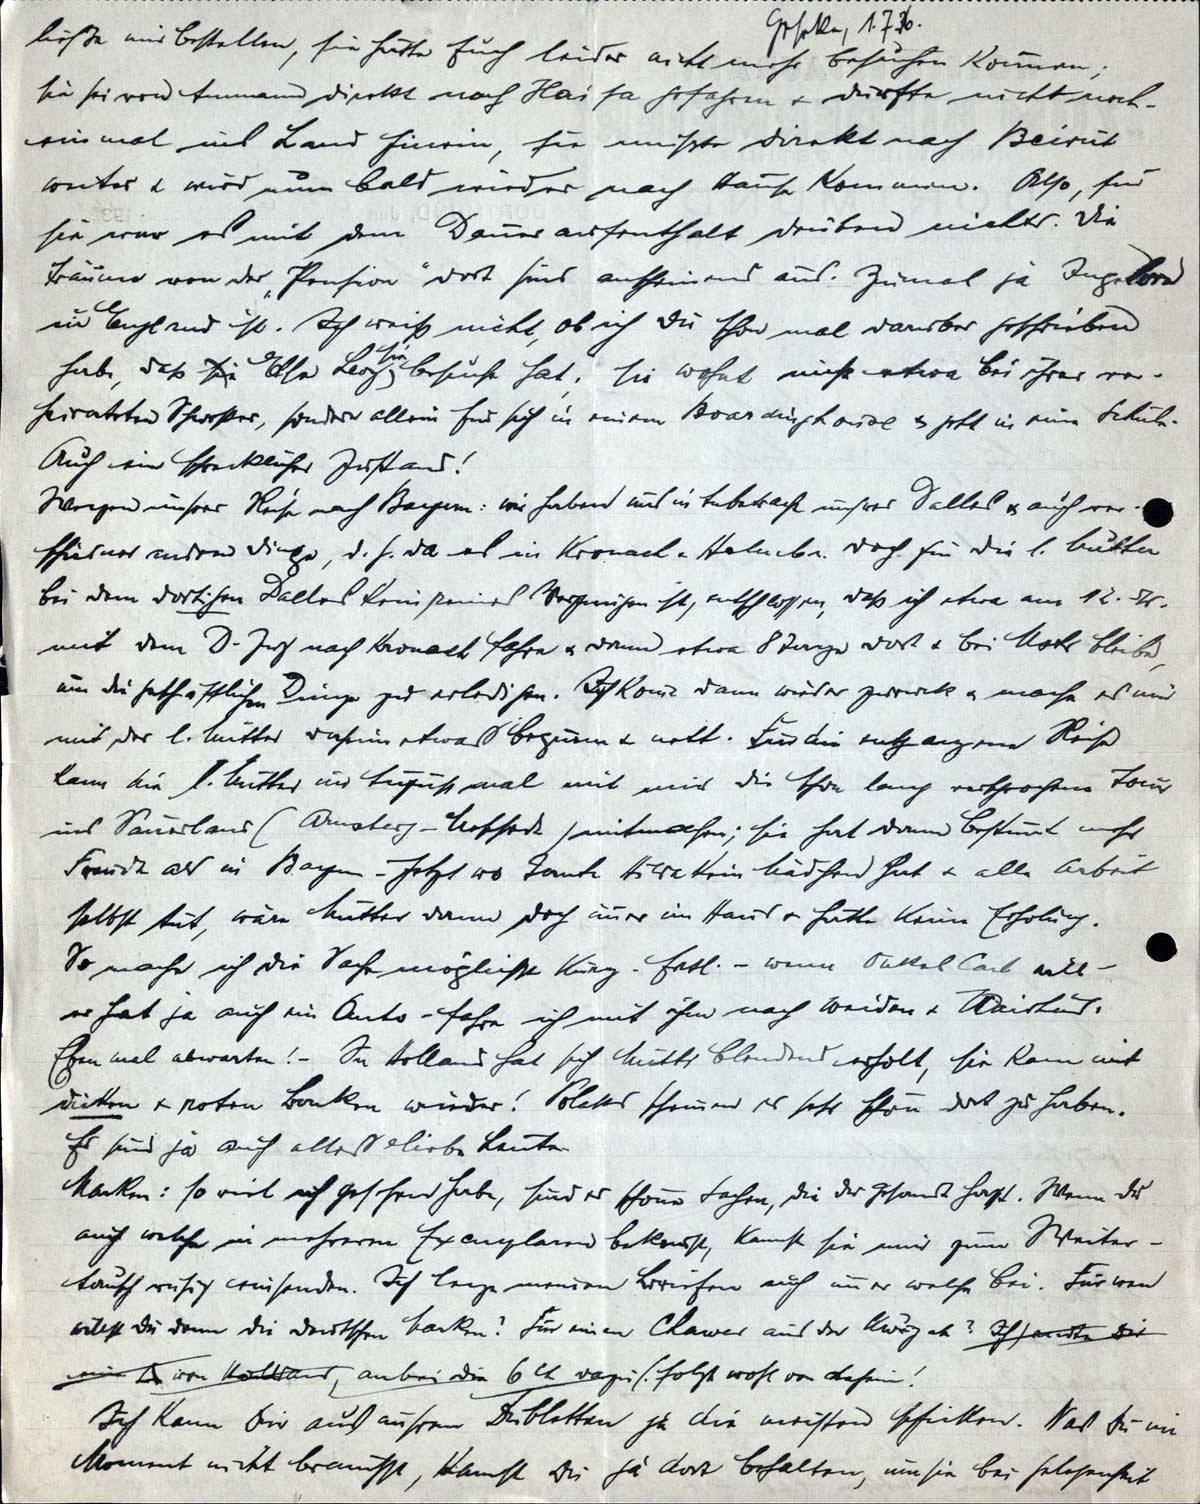 Geseke, 1.7.36.
ließe mir bestellen, sie hätte Euch leider nicht mehr besuchen können;
sie sei von Ammand direkt nach Haifa gefahren & dürfte nicht noch-
einmal ins Land hinein, sie müßte direkt nach Beirut
weiter & wird nun bald wieder nach Hause kommen. Also, für
sie war es mit dem Daueraufenthalt drüben nichts. Die
Träume von der „Pension" dort sind anscheinend aus. Zumal ja Ingelore
in England ist. Ich weiß nicht, ob ich Dir schon mal darüber geschrieben
habe, daß Else Levy sie besucht hat. Sie wohnt nicht etwa bei ihrer ver-
heirateten Schwester, sondern allein für sich in einem Boardinghouse & geht in eine Schule.
Auch ein schrecklicher Zustand!
Wegen unsrer Reise nach Bayern: wir haben uns in Anbetracht unsres Dalles & auch ver-
schiedner andrer Dinge, d.h. da es in Kronach & doch für die l. Mutter
bei dem dortigen Dalles kein Vergnügen ist, entschlossen, daß ich etwa am 12. ds.
mit dem D-Zug nach Kronach fahre & dann etwa 8 Tage dort & bei bleibe,
um die geschäftlichen Dinge zu erledigen. Ich komme dann wieder zurück & mache es mir
mit der l. Mutter daheim etwas bequem & nett. Für die entgangene Reise
kann die l. Mutter im August mal mit mir die schon lang versprochene Tour
ins Sauerland (Arnsberg - ) mitmachen; sie hat dann bestimmt mehr
Freude als in Bayern - jetzt wo Tante kein Mädchen hat & alle Arbeit
selbst tut, wäre Mutter dann doch immer im Haus & hätte keine Erholung.
So mache ich die Sache möglichst kurz. Evtl. - wenn Onkel Carl will -
er hat ja auch ein Auto - fahre ich mit ihm nach Weiden &
Eben mal abwarten! - In Holland hat sich Mutter blendend erholt, sie kam mit
dicken & roten Backen wieder! Polaks scheinen es sehr schön dort zu haben.
Es sind ja auch alles liebe Leute.
Marken: so viel ich gesehen habe, sind es schöne Sachen, die Du gesandt hast. Wenn Du
auch welche in mehreren Exemplaren bekommst, kannst sie mir zum Weiter-
tausch ruhig einsenden. Ich lege meinen Briefen auch immer welche bei. Für wen
willst Du denn die deutschen Marken? Für einen Chawer aus der Kwuzah? Ich sandte Dir
eine von Holland, anbei die 6 folgt wohl von daheim!
Ich kann Dir aus unsren Dubletten ja die meisten schicken. Was Du im
Moment nicht brauchst, kannst Du ja dort behalten, um sie bei Gelegenheit